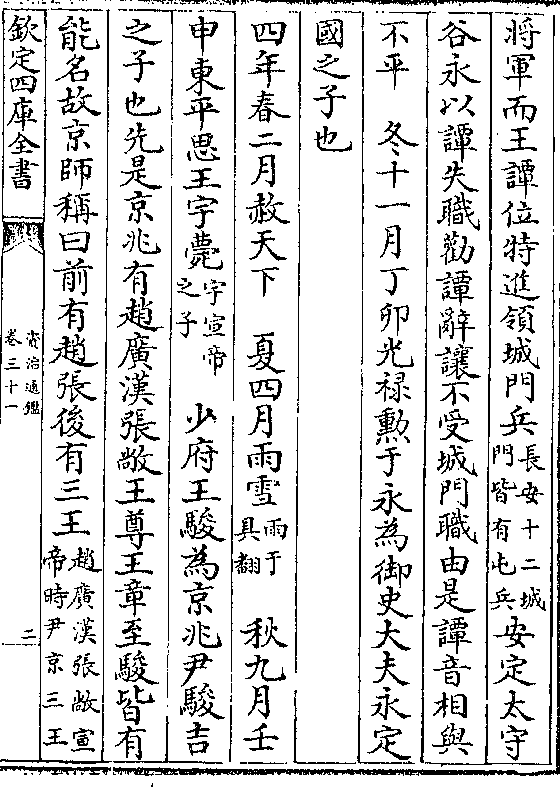 將軍而王譚位特進領城門兵長安十二城門皆有屯兵安定太守
谷永以譚失職勸譚辭讓不受城門職由是譚音相與
不平　冬十一月丁卯光禄勲于永為御史大夫永定
國之子也
四年春二月赦天下　夏四月雨雪雨于具翻　秋九月壬
申東平思王宇薨宇宣帝之子　少府王駿為京兆尹駿吉
之子也先是京兆有趙廣漢張敞王尊王章至駿皆有
能名故京師稱曰前有趙張後有三王趙廣漢張敞宣帝時尹京三王
欽定四庫全書
資治通鑑
卷三十一
二